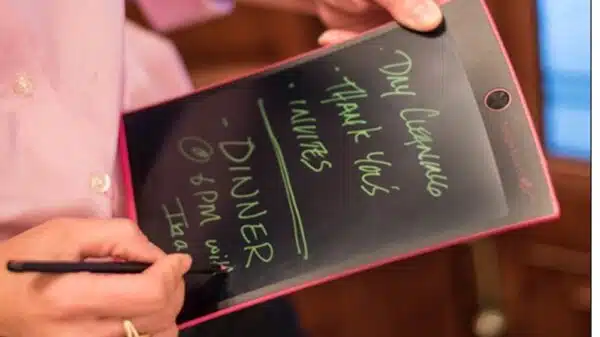 · DRY CLEANING
· THANK YOU'S
· INVITES
· DINNER
@ 6PM with